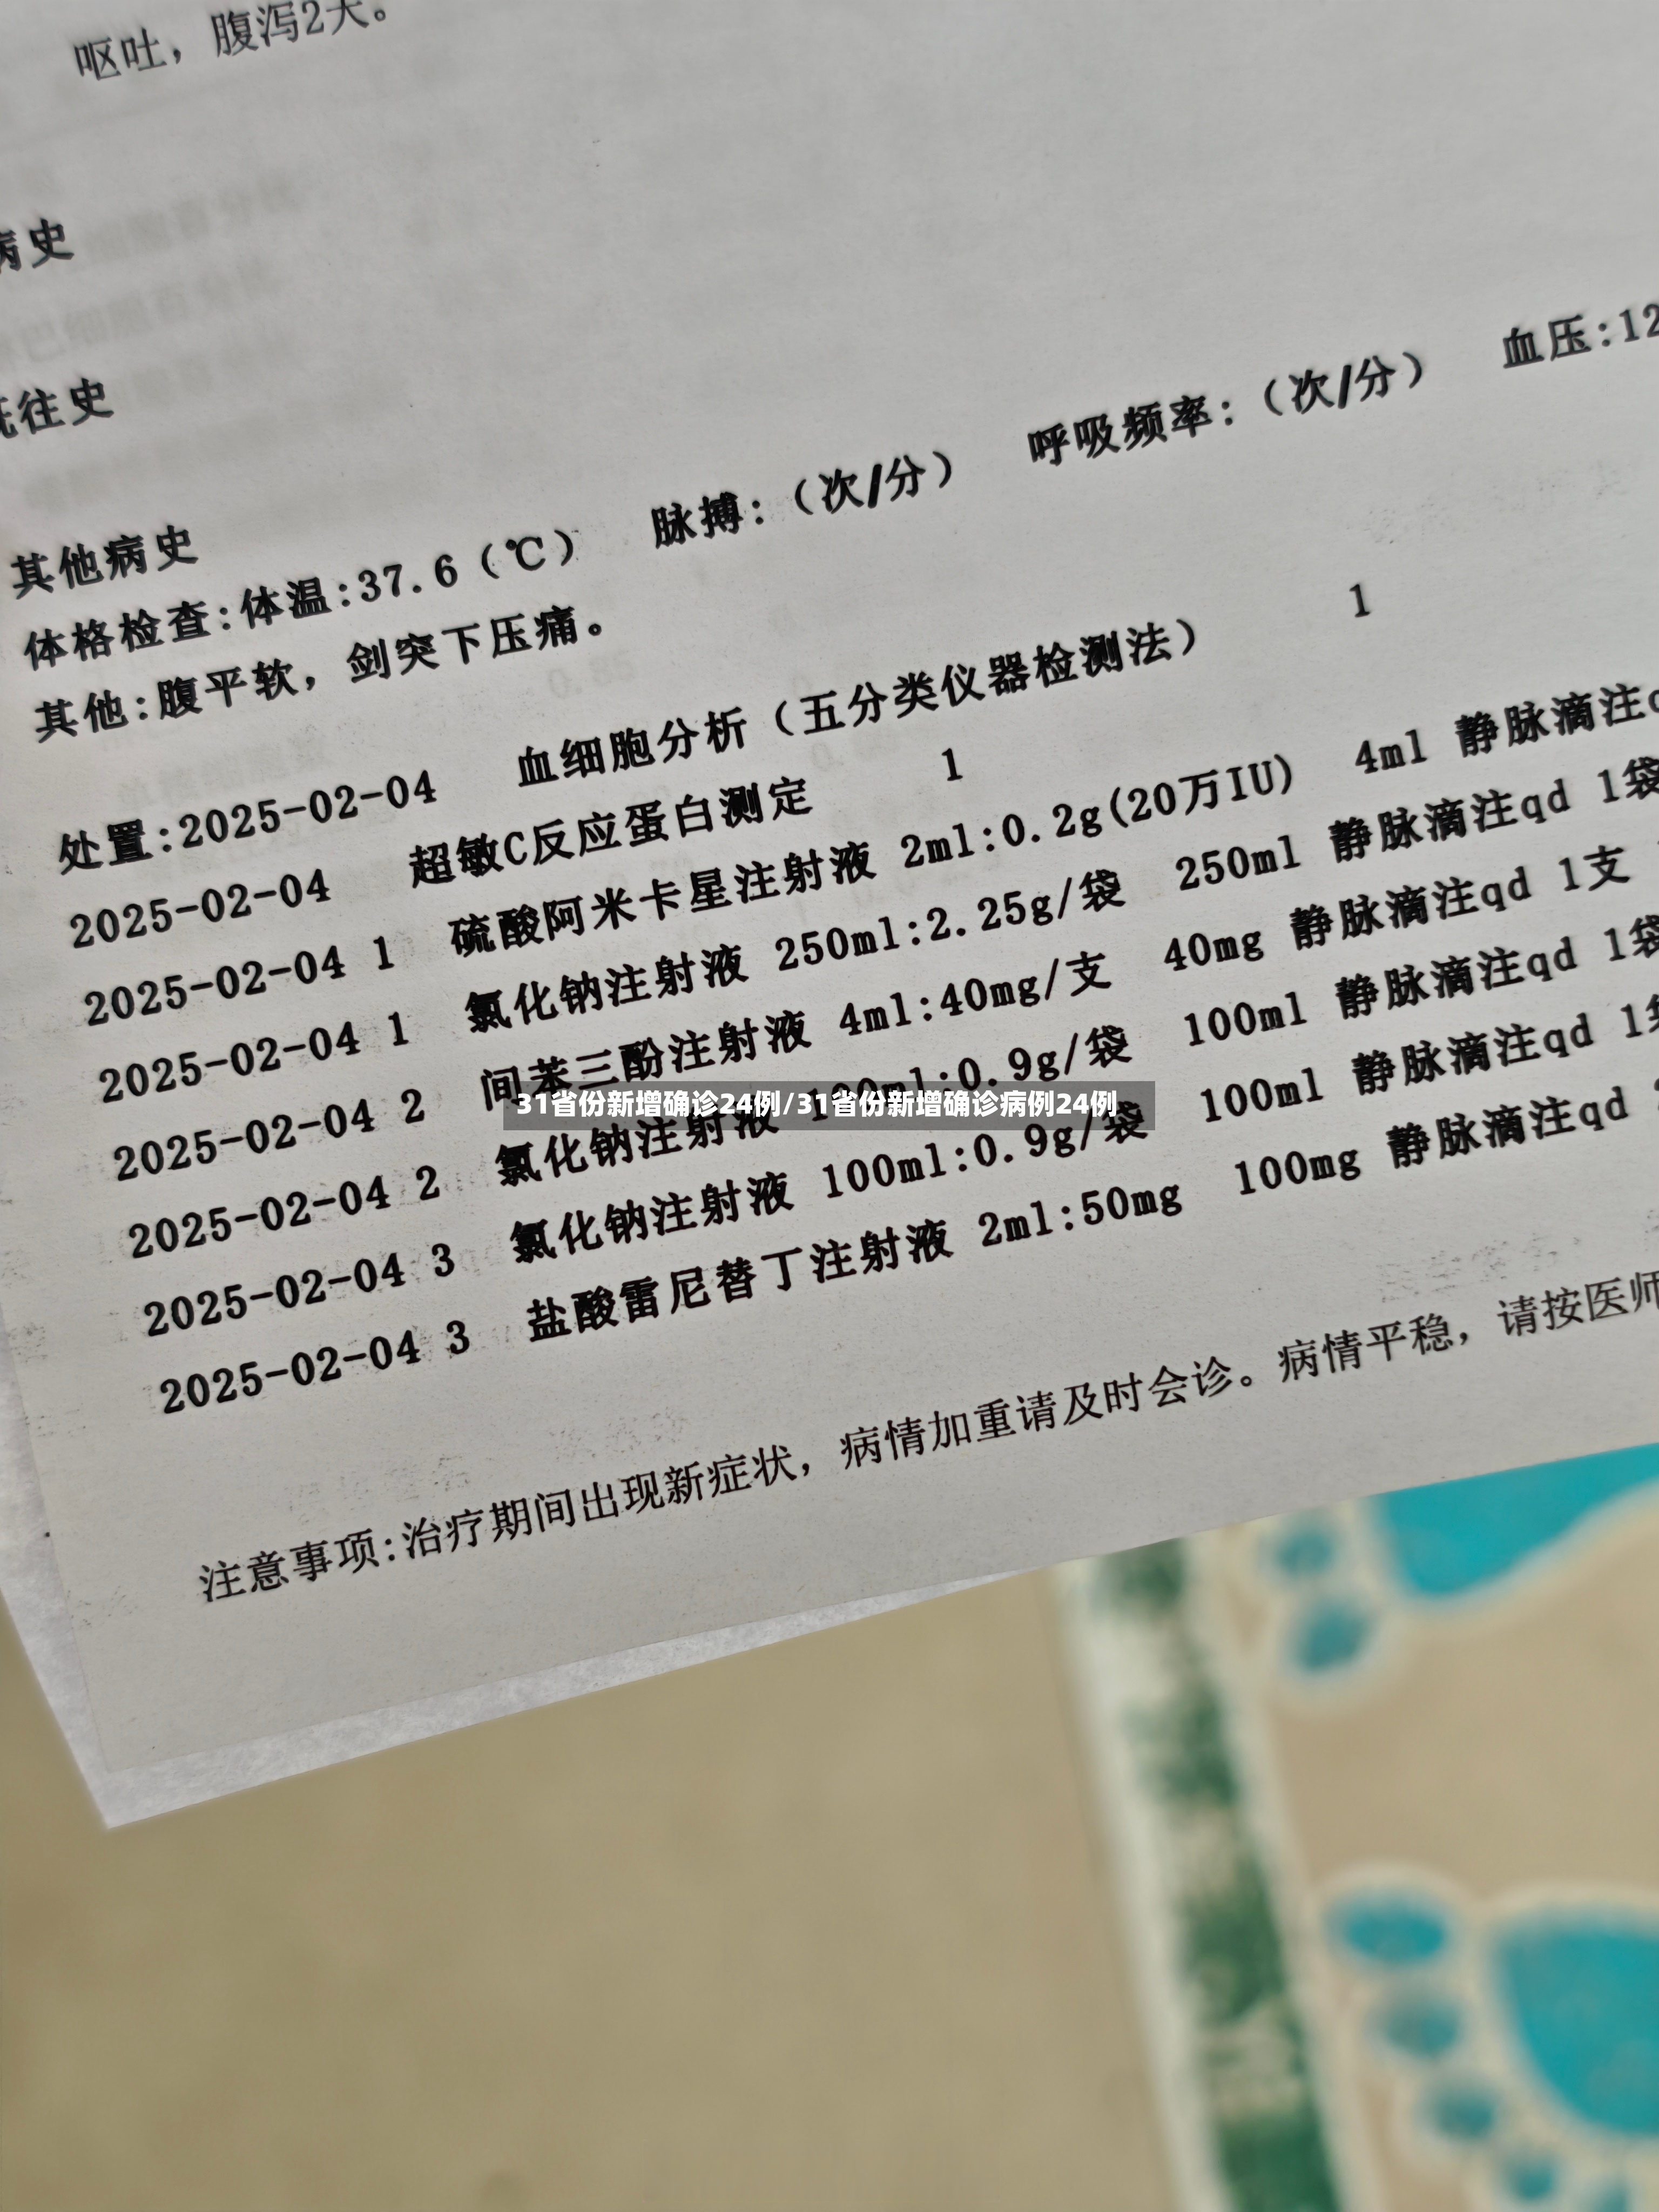 呕吐，腹泻2天。
病史
既往史
其他病史
体格检查:体温:37.6（℃） 脉搏:（次/分） 呼吸频率:（次/分） 血压:12
其他:腹平软，剑突下压痛。
处置:2025-02-04 血细胞分析（五分类仪器检测法） 1
2025-02-04 超敏C反应蛋白测定 1
2025-02-04 1 硫酸阿米卡星注射液 2ml:0.2g(20万IU) 4ml 静脉滴注
2025-02-04 1 氯化钠注射液 250ml:2.25g/袋 250ml 静脉滴注qd 1袋
2025-02-04 2 间苯三酚注射液 4ml:40mg/支 40mg 静脉滴注qd 1支
2025-02-04 2 氯化钠注射液 100ml:0.9g/袋 100ml 静脉滴注qd 1袋
2025-02-04 3 氯化钠注射液 100ml:0.9g/袋 100ml 静脉滴注qd 1袋
2025-02-04 3 盐酸雷尼替丁注射液 2ml:50mg 100mg 静脉滴注qd
注意事项:治疗期间出现新症状，病情加重请及时会诊。病情平稳，请按医师
31省份新增确诊24例/31省份新增确诊病例24例